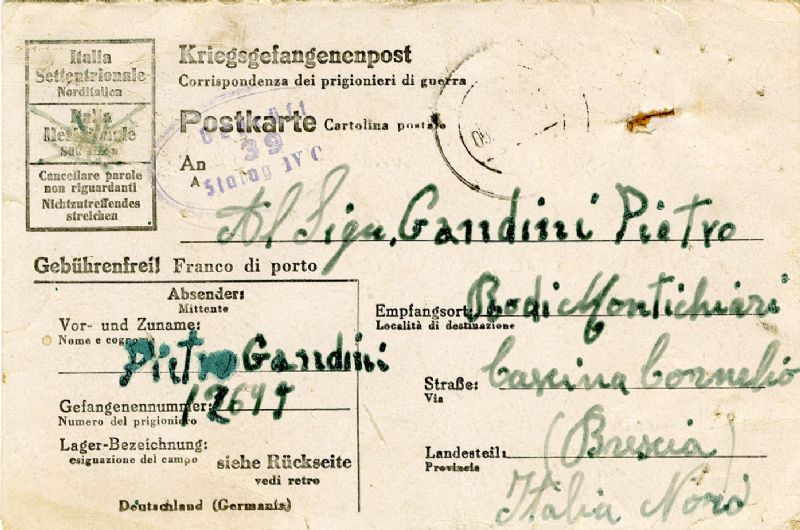 Italia
Settentrionale
Norditalien
Italia
Meridionale
Süditalien
Cancellare parole
non riguardanti
Nichtzutreffendes
streichen
Kriegsgefangenenpost
Corrispondenza dei prigionieri di guerra
Postkarte Cartolina postale
Geprüft
39
Stalag IV C
An
A
Al Sign. Gandini Pietro
Gebührenfrei! Franco di porto
Absender:
Mittente
Vor- und Zuname:
Nome e cognome
Pietro Gandini
Gefangenennummer:
Numero del prigioniero
Lager-Bezeichnung:
esignazione del campo
siehe Rückseite
vedi retro
Deutschland (Germania)
Empfangsort: Bodi Montichiari
Località di destinazione
Straße: Cascina Cornelio
Via
(Brescia)
Landesteil:
Provincia
Italia Nord